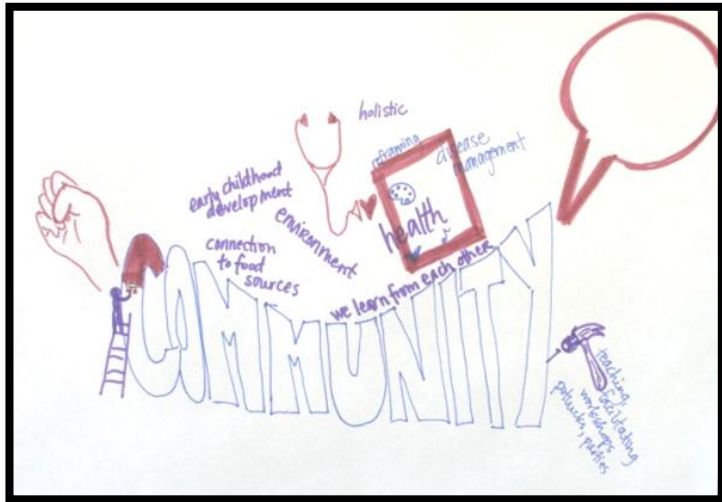 holistic
reframing
disease
management
early childhood
development
environment
health
connection
to food
sources
we learn from each other
COMMUNITY
teaching
facilitating
workshops
potlucks, parties